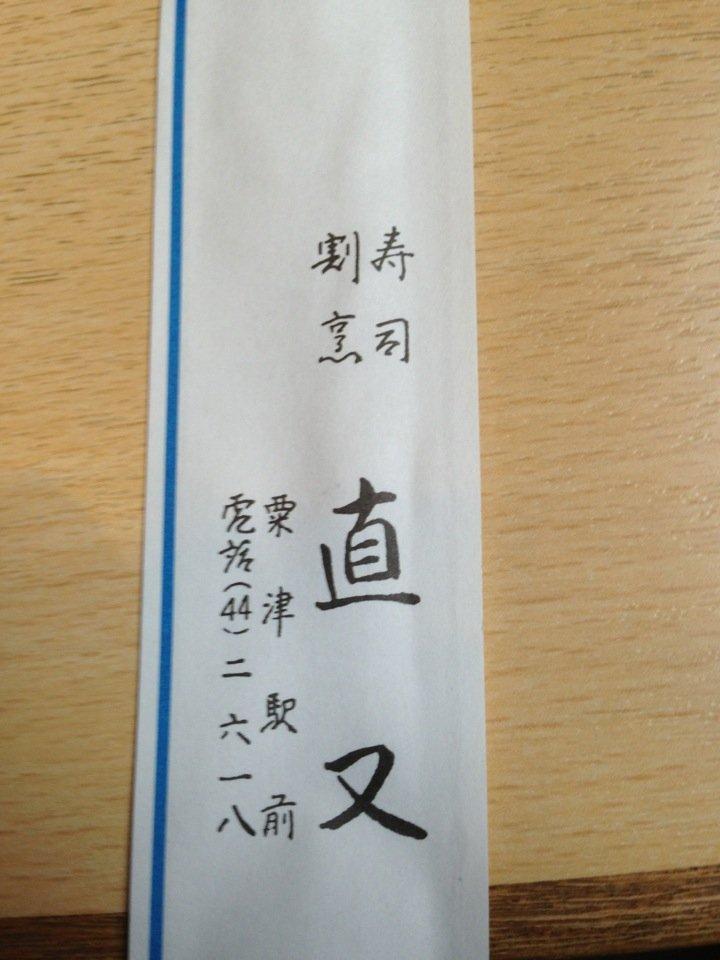 寿司
割烹
直又
粟津駅前
電話(44)二六一八